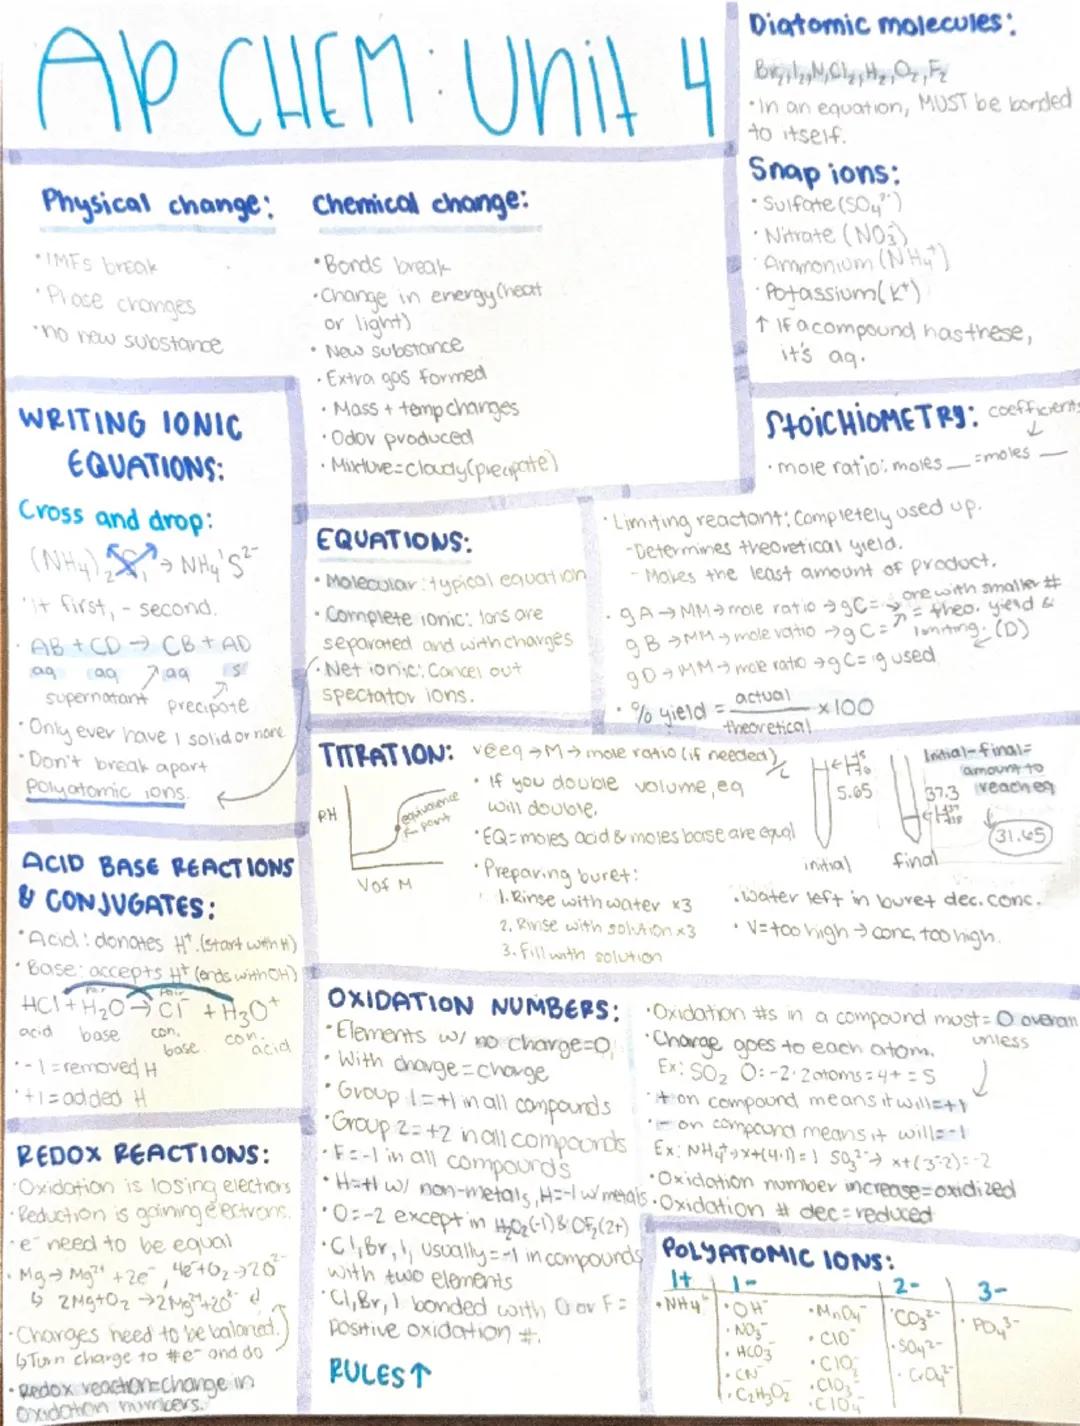 AP CHEM: Unit 4
Diatomic molecules:
Br₂, I₂, N₂, Cl₂, H₂, O₂, F₂
• In an equation, MUST be bonded
to itself.
Snap ions:
• Sulfate (SO₄²⁻)
• Nitrate (NO₃⁻)
• Ammonium (NH₄⁺)
• Potassium (K⁺)
↑ If a compound has these,
it's aq.
Physical change:
• IMFs break
• Phase changes
• no new substance
Chemical change:
• Bonds break
• Change in energy (heat
or light)
• New substance
• Extra gas formed
• Mass + temp changes
• Odor produced
• Mixture = cloudy (precipate)
WRITING IONIC
EQUATIONS:
Cross and drop:
(NH₄)₂ S₁ → NH₄¹ S²⁻
• + first, - second.
• AB + CD → CB + AD
aq aq aq s
supernatant precipate
• Only ever have 1 solid or none
• Don't break apart
polyatomic ions.
EQUATIONS:
• Molecular: typical equation
• Complete ionic: Ions are
separated and with charges
• Net ionic: Cancel out
spectator ions.
STOICHIOMETRY:
coefficients
• mole ratio: moles __ = moles __
• Limiting reactant: Completely used up.
- Determines theoretical yield.
- Makes the least amount of product.
• g A → MM → mole ratio → g C =
g B → MM → mole ratio → g C =
one with smaller #
= theo. yield &
limiting. (D)
g D → MM → mole ratio → g C = g used
• % yield = actual / theoretical x 100
TITRATION:
veeq → M → mole ratio (if needed) / L
PH
equivalence
point
V of M
• If you double volume, eq
will double.
• EQ = moles acid & moles base are equal
• Preparing buret:
1. Rinse with water x3
2. Rinse with solution x3
3. Fill with solution
5.65
initial
37.3
final
Initial-final =
amount to
reach eq
31.65
• Water left in buret dec. conc.
• V = too high → conc. too high.
ACID BASE REACTIONS
& CONJUGATES:
• Acid: donates H⁺. (start with H)
• Base: accepts H⁺ (ends with OH)
Pair Pair
HCl + H₂O → Cl⁻ + H₃O⁺
acid base con. base con. acid
• -1 = removed H
• +1 = added H
REDOX REACTIONS:
• Oxidation is losing electrons
• Reduction is gaining electrons.
• e⁻ need to be equal
• Mg → Mg²⁺ + 2e⁻, 4e⁻ + O₂ → 2O²⁻
↳ 2Mg + O₂ → 2Mg²⁺ + 2O²⁻
• Charges need to be balanced.
↳ Turn charge to # e⁻ and do
• Redox reaction = change in
oxidation numbers.
OXIDATION NUMBERS:
• Elements w/ no charge = 0
• With charge = charge
• Group 1 = +1 in all compounds
• Group 2 = +2 in all compounds
• F = -1 in all compounds
• H = +1 w/ non-metals, H = -1 w/ metals
• O = -2 except in H₂O₂ (-1) & OF₂ (2+)
• Cl, Br, I, usually = -1 in compounds
with two elements
• Cl, Br, I bonded with O or F =
positive oxidation #.
RULES ↑
• Oxidation #s in a compound must = 0 overall
unless
• Charge goes to each atom.
Ex: SO₂ O: -2 · 2 atoms = 4+ = S
• + on compound means it will = +1
• - on compound means it will = -1
Ex: NH₄⁺ → x + (4·1) = 1 SO₃²⁻ → x + (3·-2) = -2
• Oxidation number increase = oxidized
• Oxidation # dec = reduced
POLYATOMIC IONS:
1+ 1- 2- 3-
• NH₄⁺ • OH⁻ • MnO₄⁻ • CO₃²⁻ • PO₄³⁻
• NO₃⁻ • ClO⁻ • SO₄²⁻
• HCO₃ • ClO₂⁻ • CrO₄²⁻
• CN⁻ • ClO₃⁻
• C₂H₃O₂⁻ • ClO₄⁻